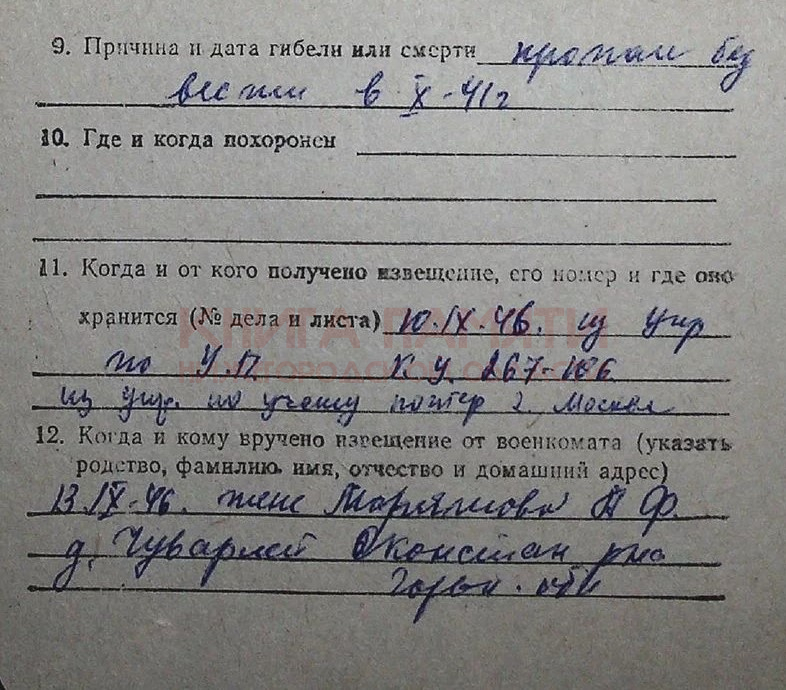 9. Причина и дата гибели или смерти пропал без
вести в IX-41г
10. Где и когда похоронен
11. Когда и от кого получено извещение, его номер и где оно
хранится (№ дела и листа) 10.IX.46. из упр
КНИГА ПАМЯТИ
НИЖЕГОРОДСКОЙ ОБЛАСТИ
по У.П. К.У. 267-
из упр. по учету потер г. Москва
12. Когда и кому вручено извещение от военкомата (указать
родство, фамилию, имя, отчество и домашний адрес)
13.IX-46. жене Ф.
д. Чуварлей рно
Горьк. обл